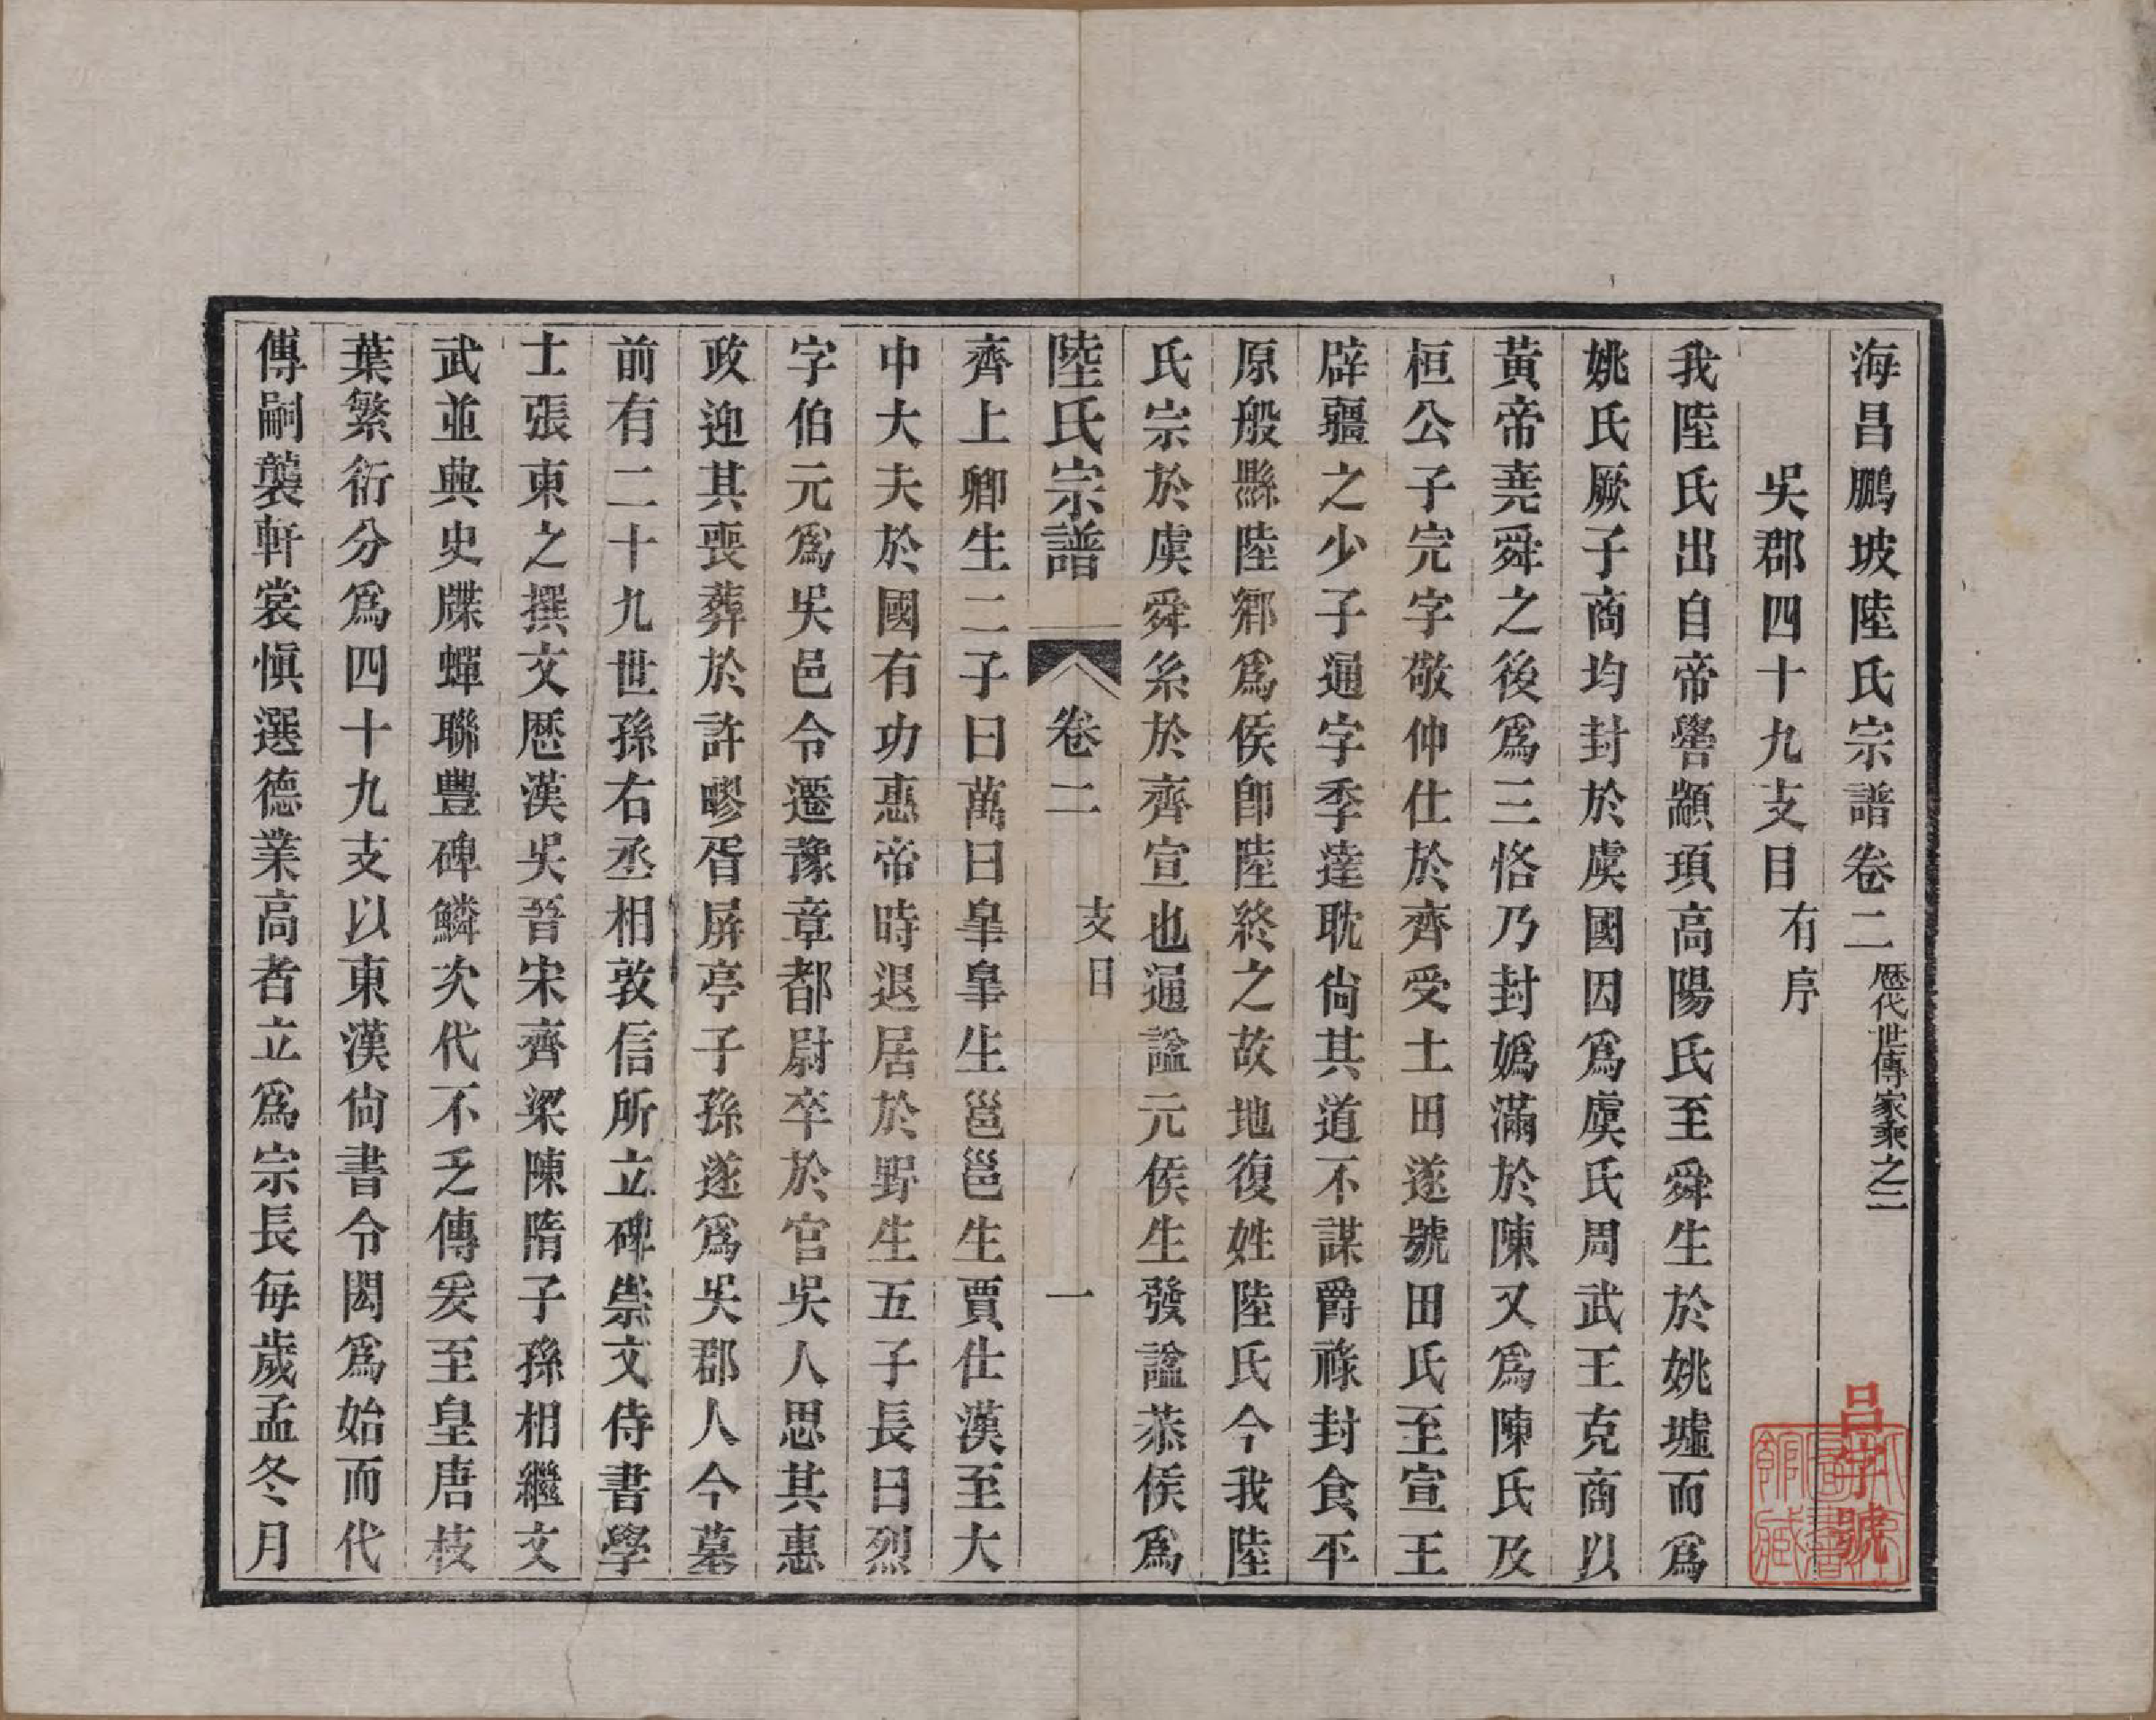 海昌鵬坡陸氏宗譜卷二 歷代世傳家乘之二
吳郡四十九支目 有序
我陸氏出自帝嚳顓頊高陽氏至舜生於姚墟而爲
姚氏厥子商均封於虞國因爲虞氏周武王克商以
黃帝堯舜之後爲三恪乃封嬀滿於陳又爲陳氏及
桓公子完字敬仲仕於齊受土田遂號田氏至宣王
辟疆之少子通字季達耽尙其道不謀爵祿封食平
原般縣陸鄉爲侯卽陸終之故地復姓陸氏今我陸
氏宗於虞舜系於齊宣也通諡元侯生發諡恭侯爲
陸氏宗譜 卷二 支目 一
齊上卿生二子曰萬曰臯臯生邕邕生賈仕漢至大
中大夫於國有功惠帝時退居於野生五子長曰烈
字伯元爲吳邑令遷豫章都尉卒於官吳人思其惠
政迎其喪葬於許疁胥屏亭子孫遂爲吳郡人今墓
前有二十九世孫右丞相敦信所立碑崇文侍書學
士張東之撰文歷漢吳晉宋齊梁陳隋子孫相繼文
武並典史牒蟬聯豐碑鱗次代不乏傳爰至皇唐枝
葉繁衍分爲四十九支以東漢尙書令閎爲始而代
傳嗣襲軒裳愼選德業高者立爲宗長每歲孟冬月
呂字號